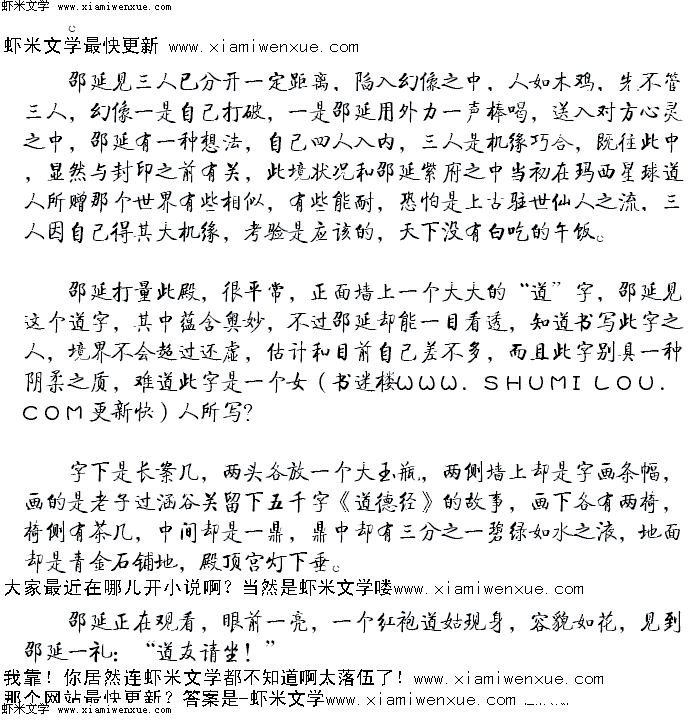 虾米文学 www.xiamiwenxue.com
虾米文学最快更新 www.xiamiwenxue.com
邵延见三人已分开一定距离，陷入幻像之中，人如木鸡，先不管
三人，幻像一是自己打破，一是邵延用外力一声棒喝，送入对方心灵
之中，邵延有一种想法，自己四人入内，三人是机缘巧合，既往此中
，显然与封印之前有关，此境状况和邵延紫府之中当初在玛西星球道
人所赠那个世界有些相似，有些能耐，恐怕是上古驻世仙人之流，三
人因自己得其大机缘，考验是应该的，天下没有白吃的午饭。
邵延打量此殿，很平常，正面墙上一个大大的“道”字，邵延见
这个道字，其中蕴含奥妙，不过邵延却能一目看透，知道书写此字之
人，境界不会超过还虚，估计和目前自己差不多，而且此字别具一种
阴柔之质，难道此字是一个女（书迷楼ＷＷＷ．ＳＨＵＭＩＬＯＵ．
ＣＯＭ更新快）人所写？
字下是长案几，两头各放一个大玉瓶，两侧墙上却是字画条幅，
画的是老子过涵谷关留下五千字《道德经》的故事，画下各有两椅，
椅侧有茶几，中间却是一鼎，鼎中却有三分之一碧绿如水之液，地面
却是青金石铺地，殿顶宫灯下垂。
大家最近在哪儿开小说啊？当然是虾米文学喽www.xiamiwenxue.com
邵延正在观看，眼前一亮，一个红袍道姑现身，容貌如花，见到
邵延一礼：“道友请坐！”
我靠！你居然连虾米文学都不知道啊太落伍了！www.xiamiwenxue.com
那个网站最快更新？答案是-虾米文学www.xiamiwenxue.com
虾米文学 www.xiamiwenxue.com